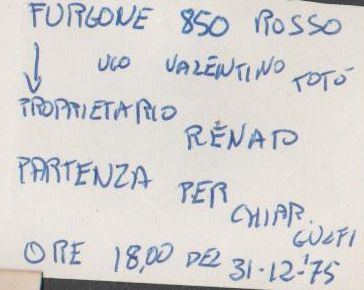 FURGONE 850 ROSSO
UGO VALENTINO TOTÓ
PROPRIETARIO
RENATO
PARTENZA PER
CHIAR.
GULFI
ORE 18,00 DEL 31-12-'75